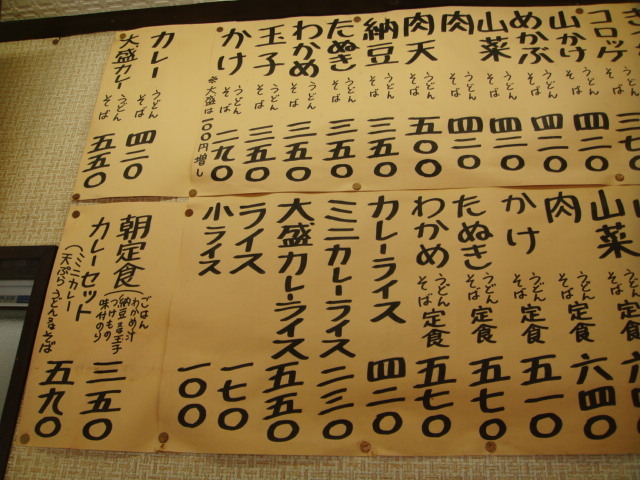 コロッケ うどん そば
山かけ うどん そば 四二〇
めかぶ うどん そば 四二〇
山菜 うどん そば 四二〇
肉 うどん そば 四二〇
肉天 うどん そば 五〇〇
納豆 うどん そば 三五〇
たぬき うどん そば 三五〇
わかめ うどん そば 三五〇
玉子 うどん そば 三五〇
かけ うどん そば 二九〇
※大盛は一〇〇円増し
カレー うどん そば 四二〇
大盛カレー うどん そば 五五〇
山菜 うどん そば 定食
肉 うどん そば 定食 六四〇
かけ うどん そば 定食 五一〇
たぬき うどん そば 定食 五七〇
わかめ うどん そば 定食 五七〇
カレーライス 四二〇
ミニカレーライス 二三〇
大盛カレーライス 五五〇
ライス 一七〇
小ライス 一〇〇
朝定食 三五〇
ごはん
わかめ汁
納豆又は玉子
つけもの
味付のり
カレーセット 五九〇
(ミニカレー
天ぷらうどん又はそば